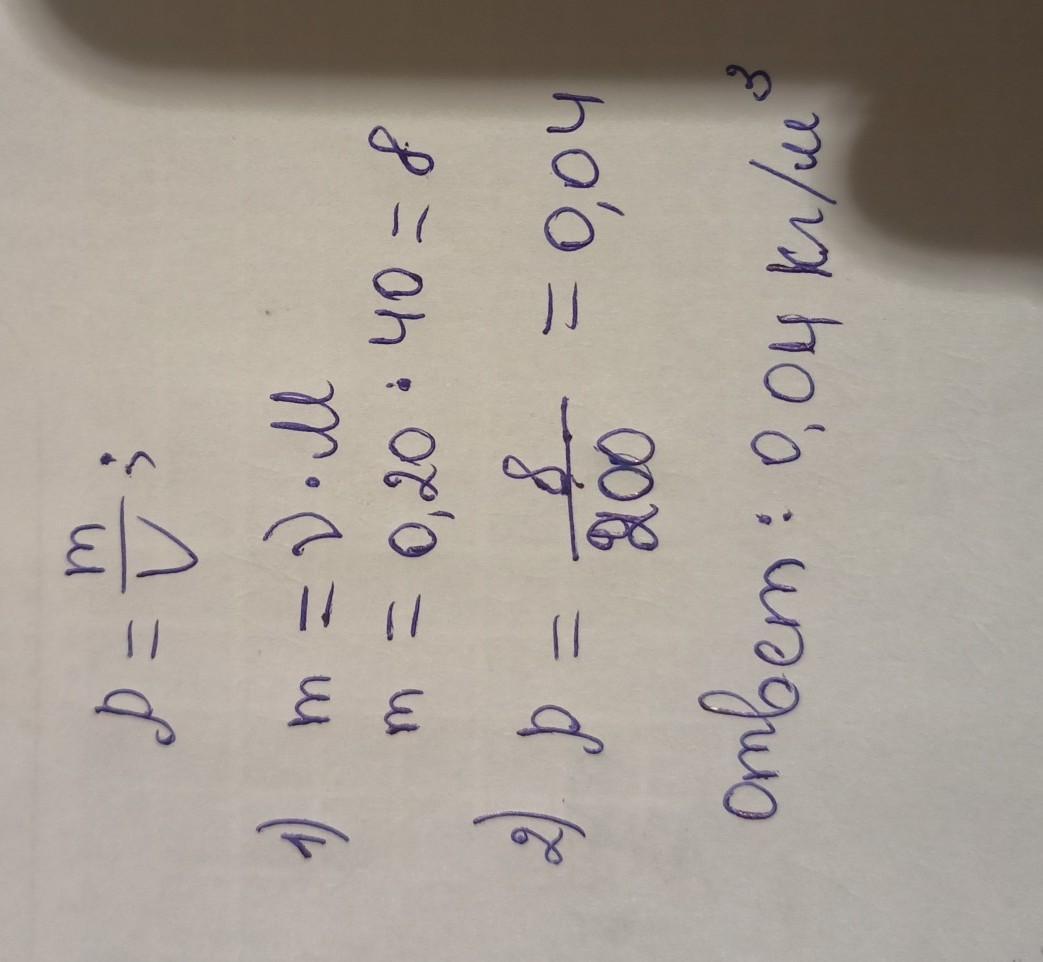 p = m/V ;
1) m = ν · M
m = 0,20 · 40 = 8
2) p = 8/200 = 0,04
Ответ: 0,04 кг/м³